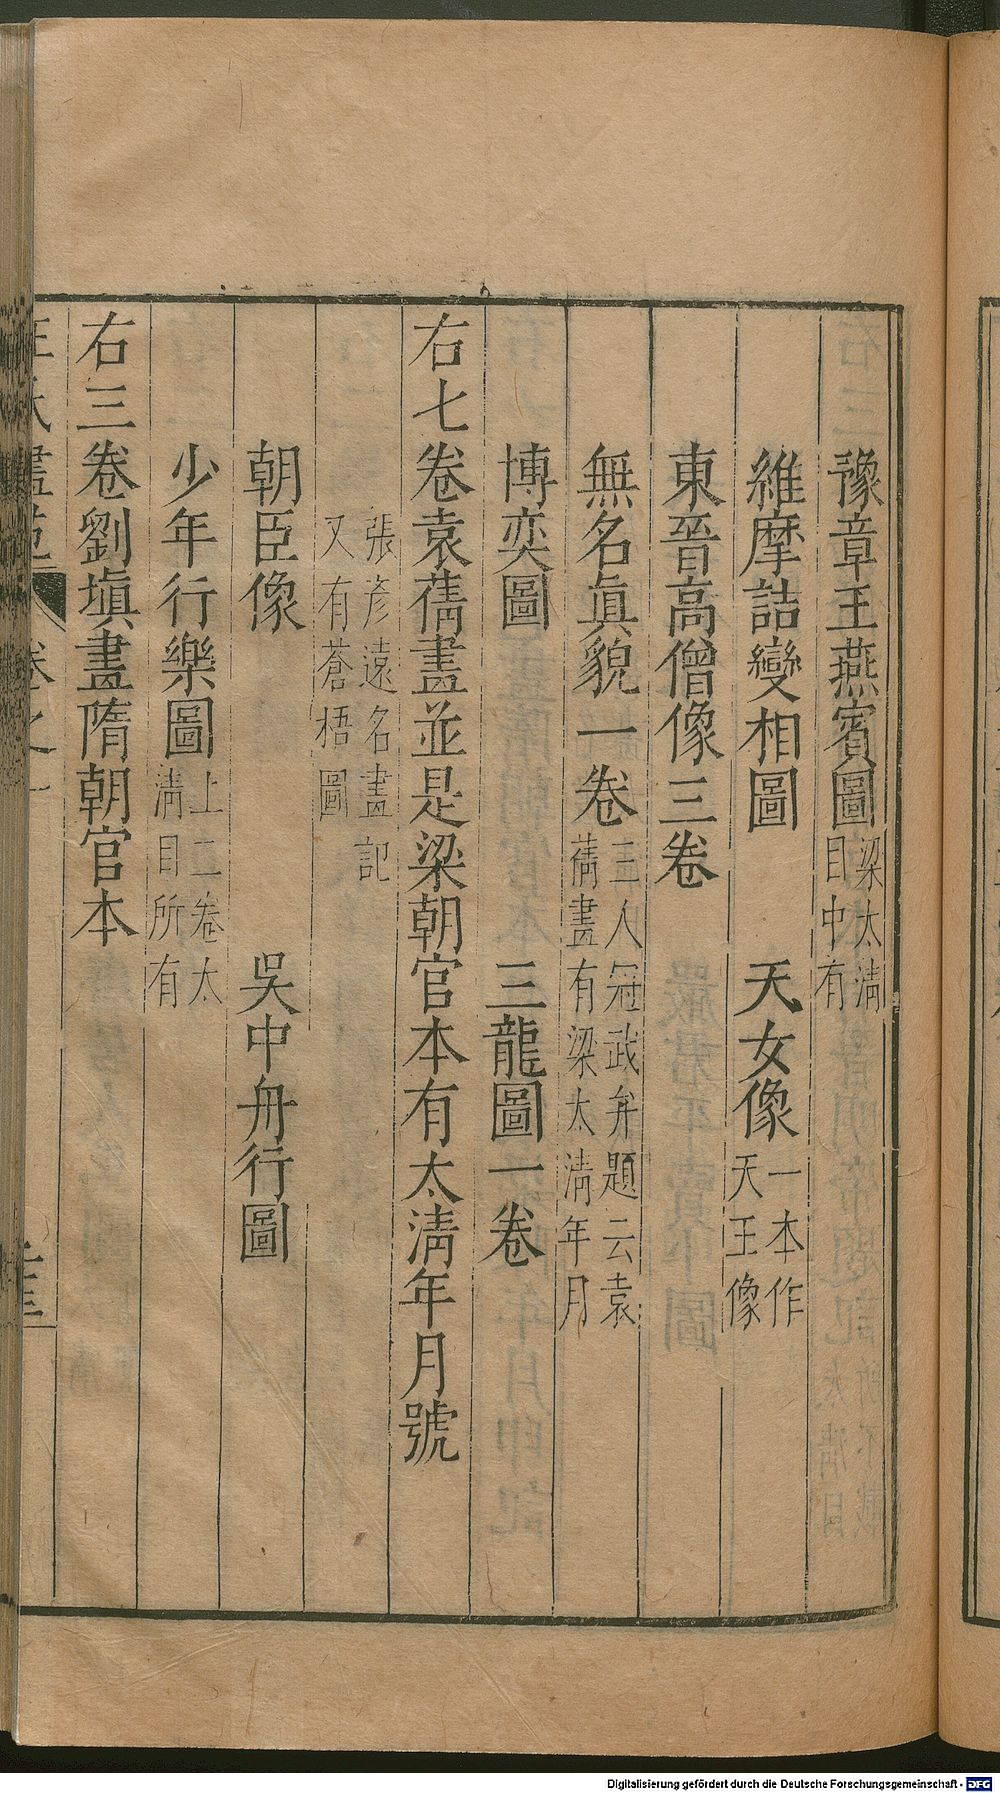 豫章王燕賓圖梁太淸目中有
維摩詰變相圖 天女像一本作天王像
東晉高僧像三卷
無名眞貌一卷三人冠武弁題云袁蒨畫有梁太淸年月
博奕圖 三龍圖一卷
右七卷袁蒨畫並是梁朝官本有太淸年月號
張彥遠名畫記又有蒼梧圖
朝臣像 吳中舟行圖
少年行樂圖上二卷太淸目所有
右三卷劉塡畫隋朝官本
王氏畫苑 卷之一
Digitalisierung gefördert durch die Deutsche Forschungsgemeinschaft - DFG